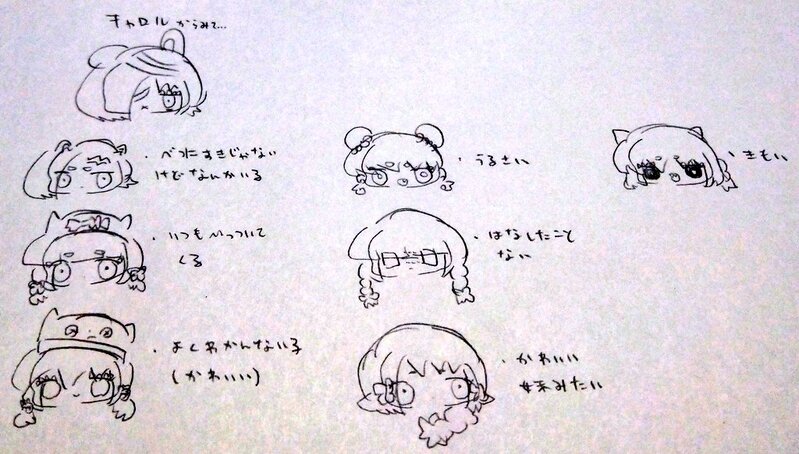 キャロルからみて...
・べつにすきじゃない
けどなんかいる
・うるさい
・きもい
・いつもくっついて
くる
・はなしたこと
ない
・よくわかんない子
(かわいい)
・かわいい